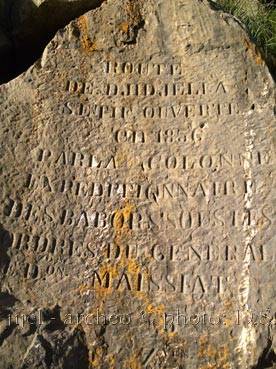 ROUTE
DE DJIDJELLA
SETIF OUVERTE
EN 1856
PAR LA COLONNE
EXPEDITIONNAIRE
DES BABORS SOUS LES
ORDRES DU GENERAL
DON MAISSIAT